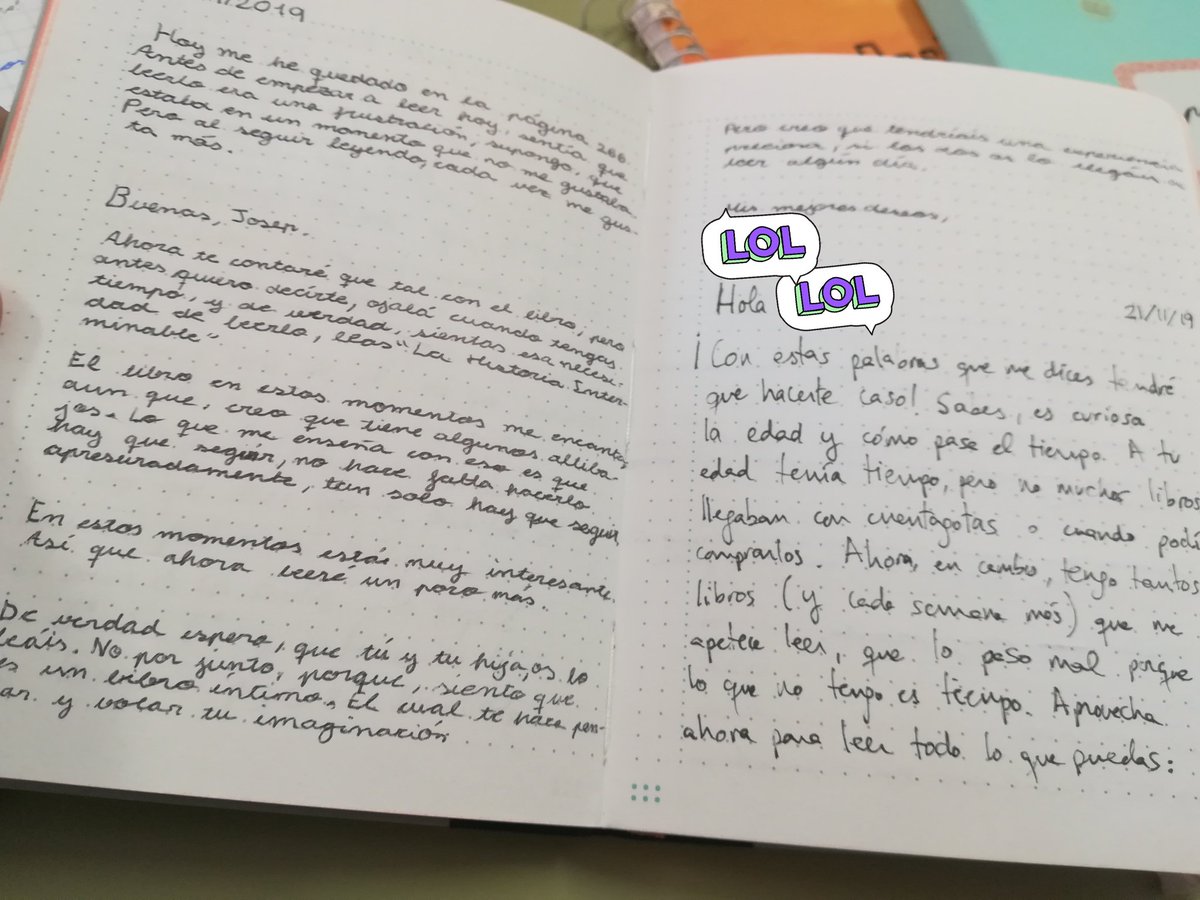 /2019
Hoy me he quedado en la página 266.
Antes de empezar a leer hoy, sentía que
leerlo era una frustración, supongo, que
estaba en un momento que no me gustaba.
Pero al seguir leyendo, cada vez me gus-
ta más.
Buenas, Josep.
Ahora te contaré que tal con el libro, pero
antes quiero decirte, ojalá cuando tengas
tiempo, y de verdad, sientas esa necesi-
dad de leerlo, leas "La Historia Inter-
minable"
El libro en estos momentos me encanta,
aun que, creo que tiene algunos altiba-
jos. Lo que me enseña con eso es que
hay que seguir, no hace falta hacerlo
apresuradamente, tan solo hay que seguir
En estos momentos está muy interesante.
Así que ahora leeré un poco más.
De verdad espero, que tú y tu hija, os lo
leáis. No por junto, porque, siento que
es un libro íntimo. El cual te hace pen-
sar y volar tu imaginación
Pero creo que tendríais una experiencia
preciosa, si los dos os lo llegáis a
leer algún día.
Mis mejores deseos,
LOL
Hola LOL
21/11/19
¡Con estas palabras que me dices tendré
que hacerte caso! Sabes, es curiosa
la edad y cómo pasa el tiempo. A tu
edad tenía tiempo, pero no muchos libros
llegaban con cuentagotas o cuando podí
comprarlos. Ahora, en cambio, tengo tantos
libros (y cada semana más) que me
apetece leer, que lo paso mal porque
lo que no tengo es tiempo. Aprovecha
ahora para leer todo lo que puedas: